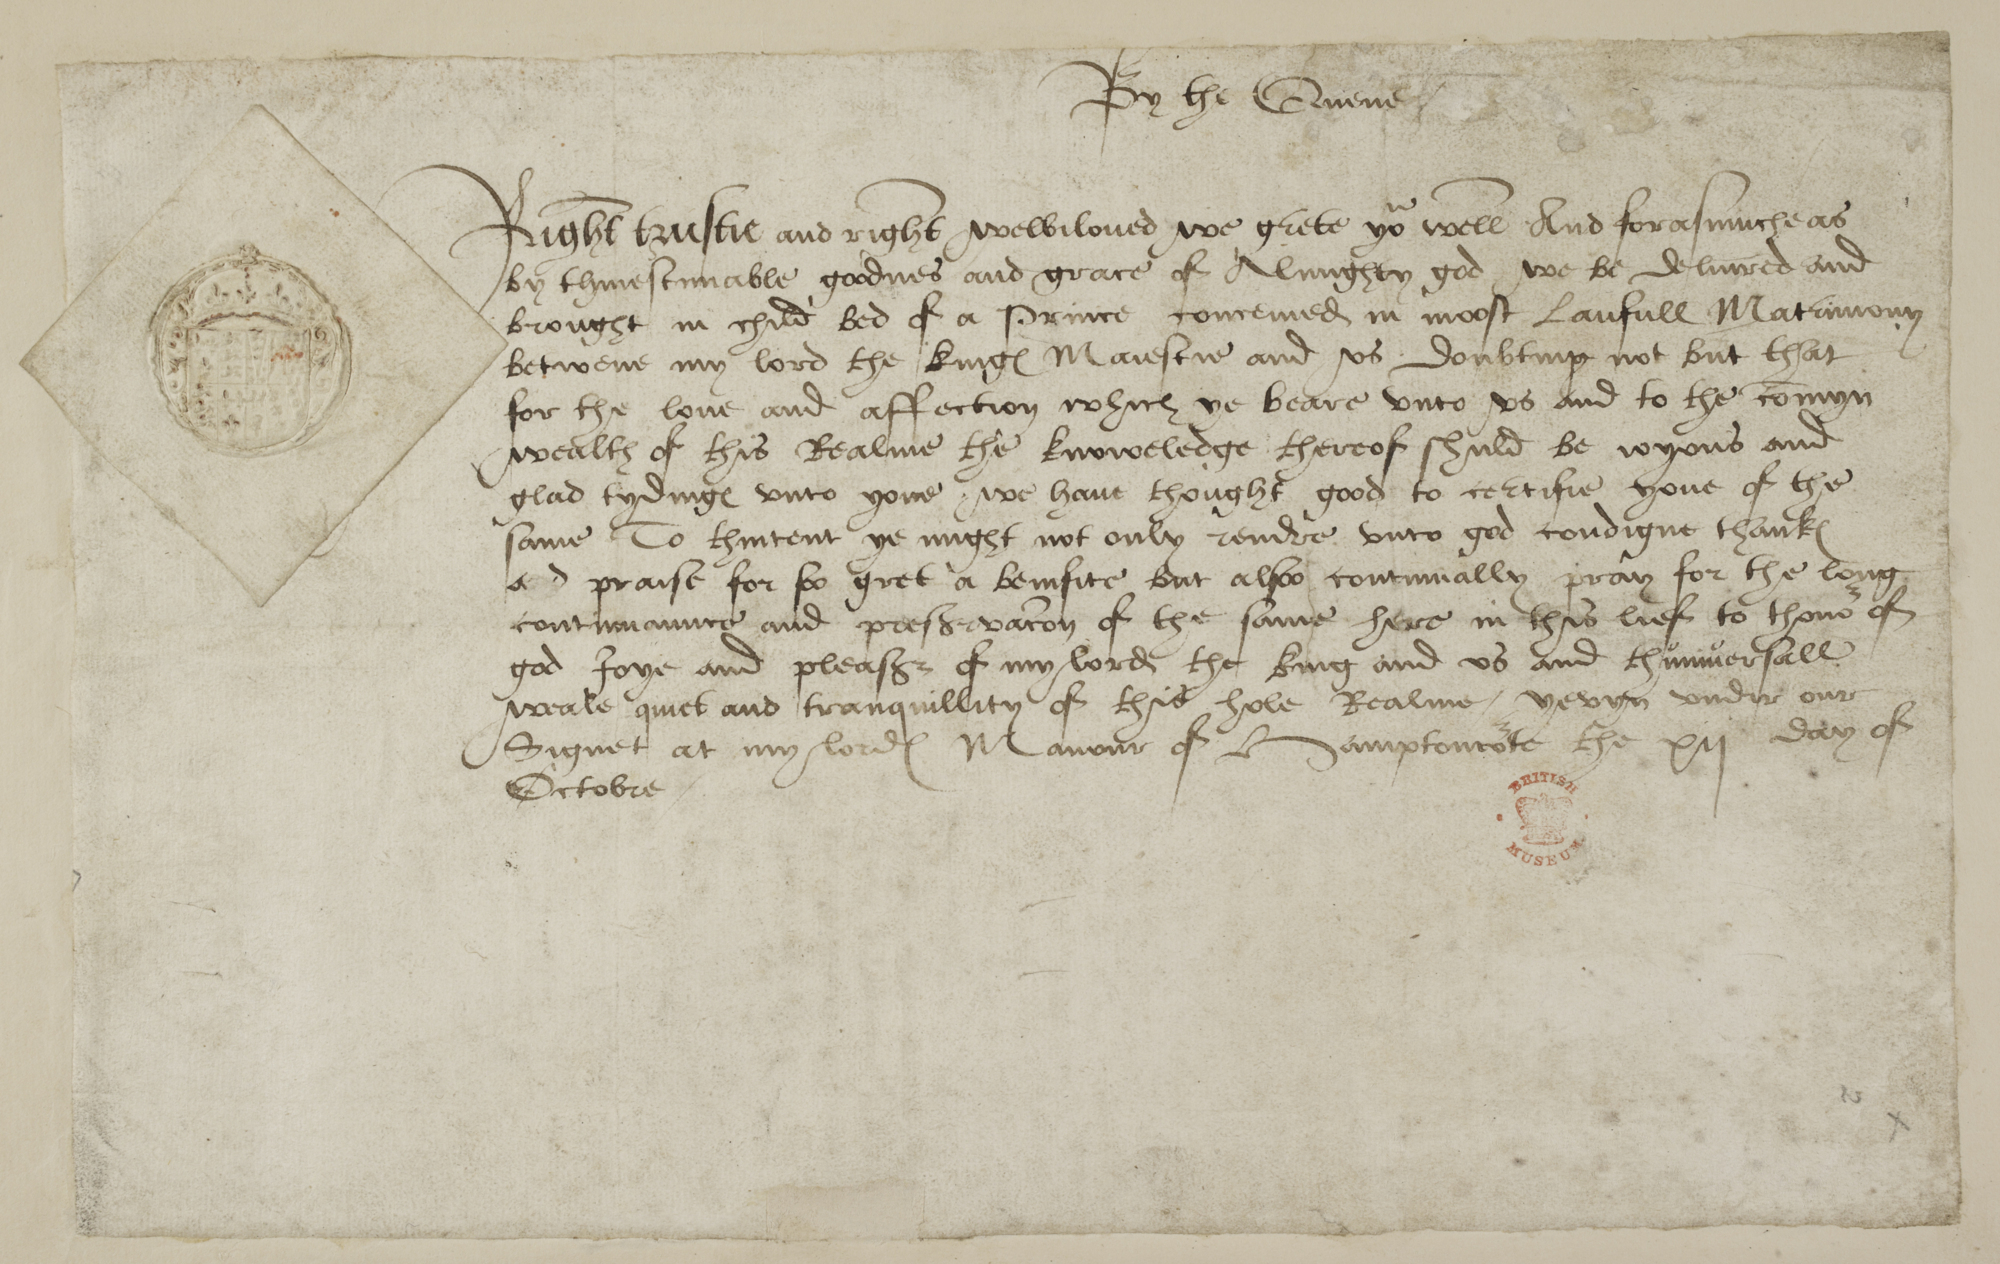 By the Quene
Right trustie and right welbiloued we grete yoᵘ well And forasmuche as
by thinestimable goodnes and grace of Almighty god we be deliuered and
brought in child bed of a Prince conceiued in moost Laufull Matrimony
betwene my lord the kinges Maiestie and vs doubting not but that
for the loue and affection which ye beare vnto vs and to the comyn
wealth of this Realme the knoweledge therof shuld be ioyous and
glad tydinges vnto youe we haue thought good to certifie youe of the
same To thintent ye might not only rendre vnto god condigne thankes
and praise for soo gret a benifite but alsoo continually pray for the long
continuaunce and preseruacon of the same here in this lief to thonor of
god Joye and pleasur of my lord the king and vs and thuniuersall
weale quiet and tranquillity of this hole Realme yevyn vndir our
Signet at my lordes Manour of Hamptoncorte the xij day of
Octobre
BRITISH
MUSEUM